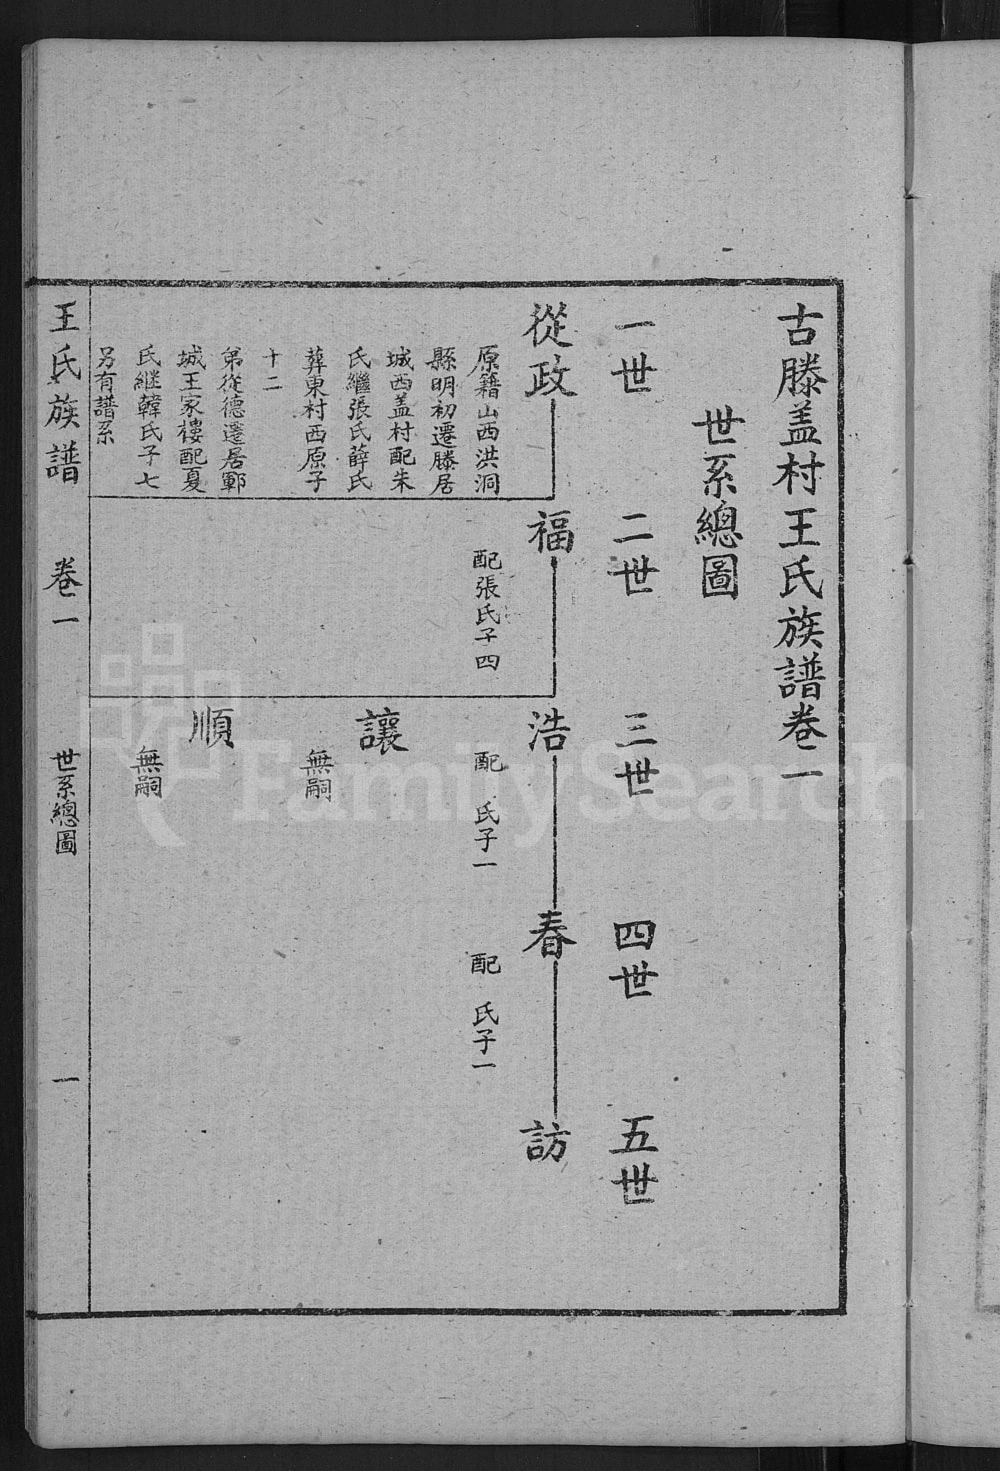 古滕盖村王氏族譜卷一
世系總圖
一世
二世
三世
四世
五世
從政
福
浩
春
訪
原籍山西洪洞
縣明初遷滕居
城西盖村配朱
氏繼張氏薛氏
葬東村西原子
十二
弟從德遷居鄆
城王家樓配夏
氏継韓氏子七
另有譜系
配張氏子四
配 氏子一
配 氏子一
讓
無嗣
順
無嗣
王氏族譜 卷一 世系總圖 一
FamilySearch